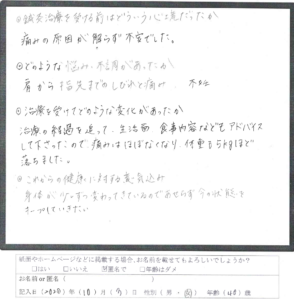 ◎鍼灸治療を受ける前はどういう心境だったか
痛みの原因が解らず不安でした。
◎どのような悩み・お悩みがあったか
肩から指先までのしびれと痛み
◎治療を受けてどのような変化があったか
治療の経過を追って、生活面、食事内容などもアドバイス
して下さったので痛みはほぼなくなり、体重も5kgほど
落ちました。
◎これからの健康に対する意気込み
身体が少しずつ変わってきているのであせらず今の状態を
キープしていきたい
紙面やホームページなどに掲載する場合、お名前を載せてもよろしいでしょうか？
□はい □いいえ 匿名で □年齢はダメ
お名前or匿名（ ）
記入日（2020）年（10）月（9）日 性別（男・女）年齢（40）歳